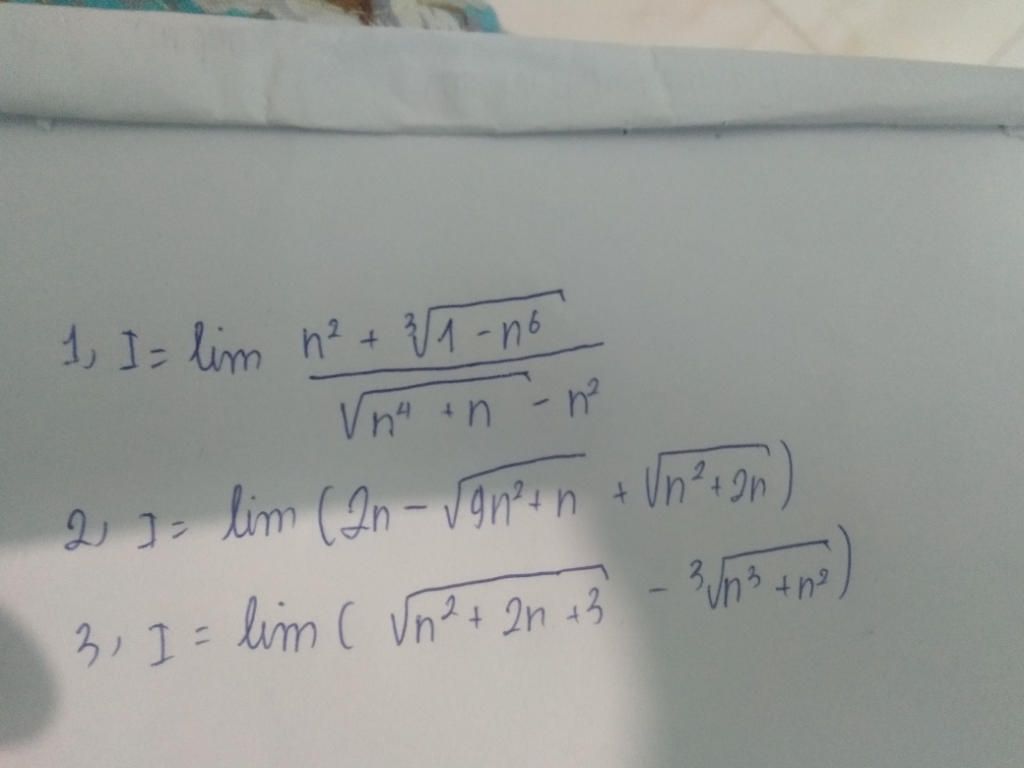 1, I = lim \frac{n^2 + \sqrt[3]{1 - n^6}}{\sqrt{n^4 + n} - n^2}
2, I = lim (2n - \sqrt{9n^2 + n} + \sqrt{n^2 + 2n})
3, I = lim ( \sqrt{n^2 + 2n + 3} - \sqrt[3]{n^3 + n^2})